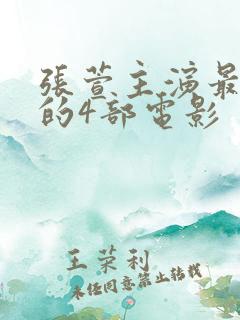 張萱主演最
的4部電影
王荣利
未经同意禁止转载